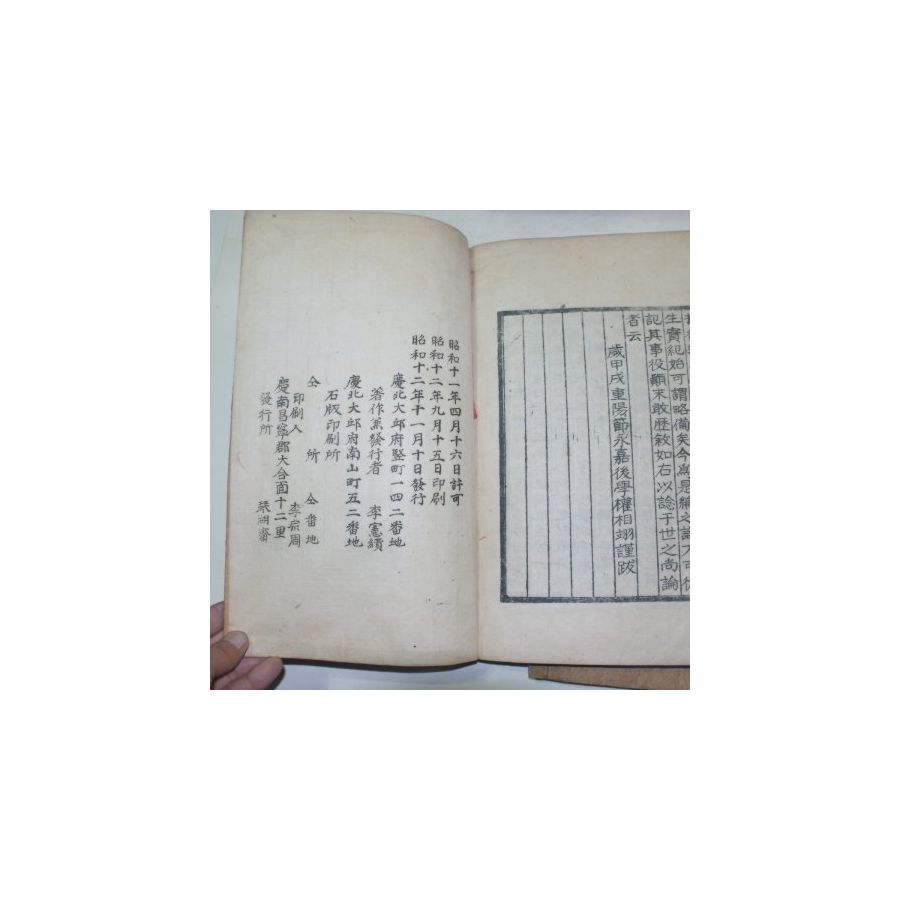 生實紀始可謂略備矣今爲是編之
記其事役顚末敢歷敘如右以諗于世之尚論
者云
歲甲戌重陽節永嘉後學權相翊謹跋
昭和十一年四月十六日許可
昭和十二年九月十五日印刷
昭和十二年十一月十日發行
慶北大邱府竪町一四二番地
著作兼發行者 李憲績
慶北大邱府南山町五二番地
石版印刷所
仝所 仝番地
印刷人 李宗周
慶南昌寧郡大合面十二里
發行所 湖齋